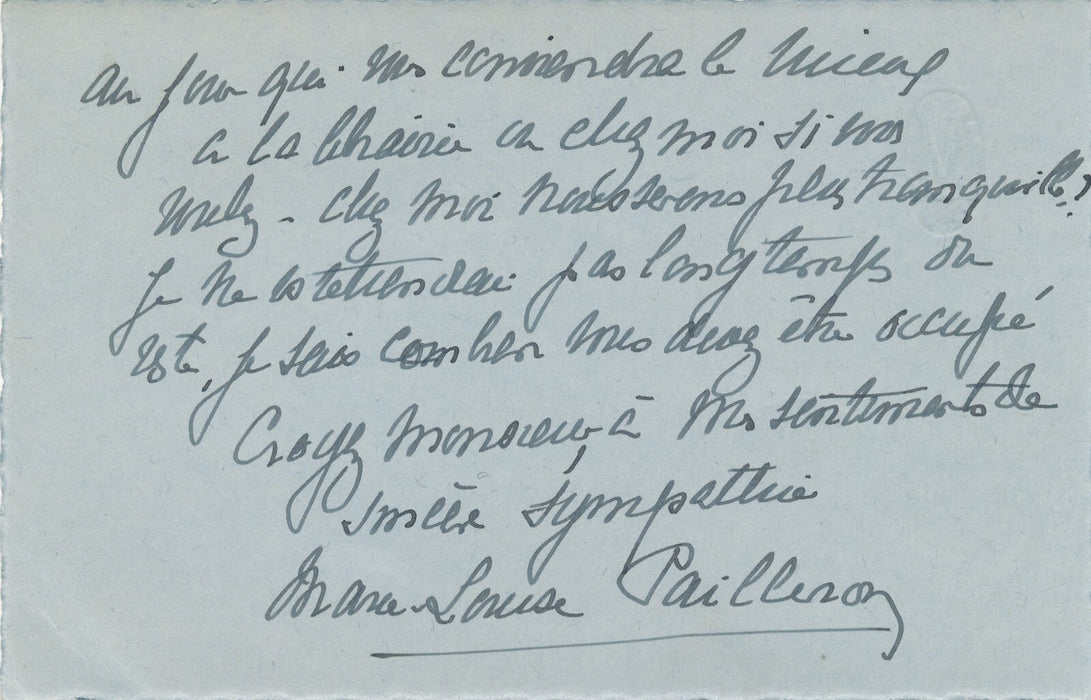 au jour qui vous conviendra le mieux
à la librairie ou chez moi si vous
voulez - chez moi nous serons plus tranquilles,
je ne vs retiendrai pas longtemps du
reste, je sais combien vous devez être occupé
Croyez Monsieur, à mes sentiments de
sincère sympathie
Marie-Louise Pailleron